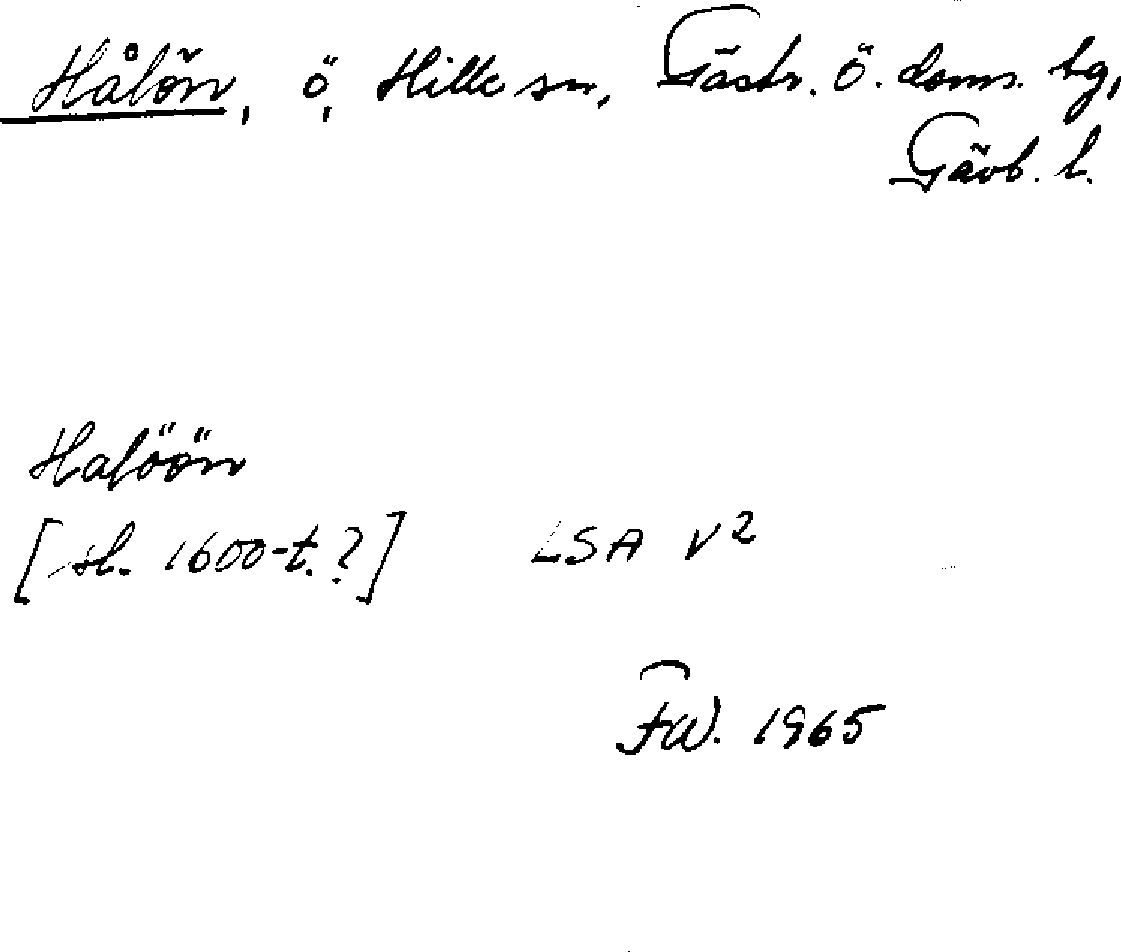 Hålön, ö, Hille sn, Gästr. ö. doms. hg,
Gävb. l.
Halöön
[sl. 1600-t.?] LSA V2
FW. 1965